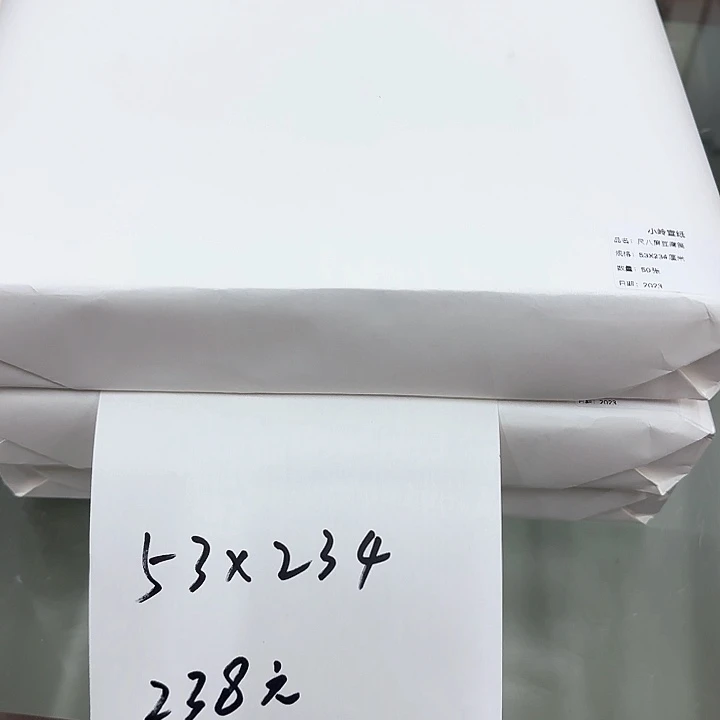 小岭宣纸
品名：尺八屏豆腐笺
规格：53X234厘米
数量：50张
日期：2023
日期：2023
53×234
238元